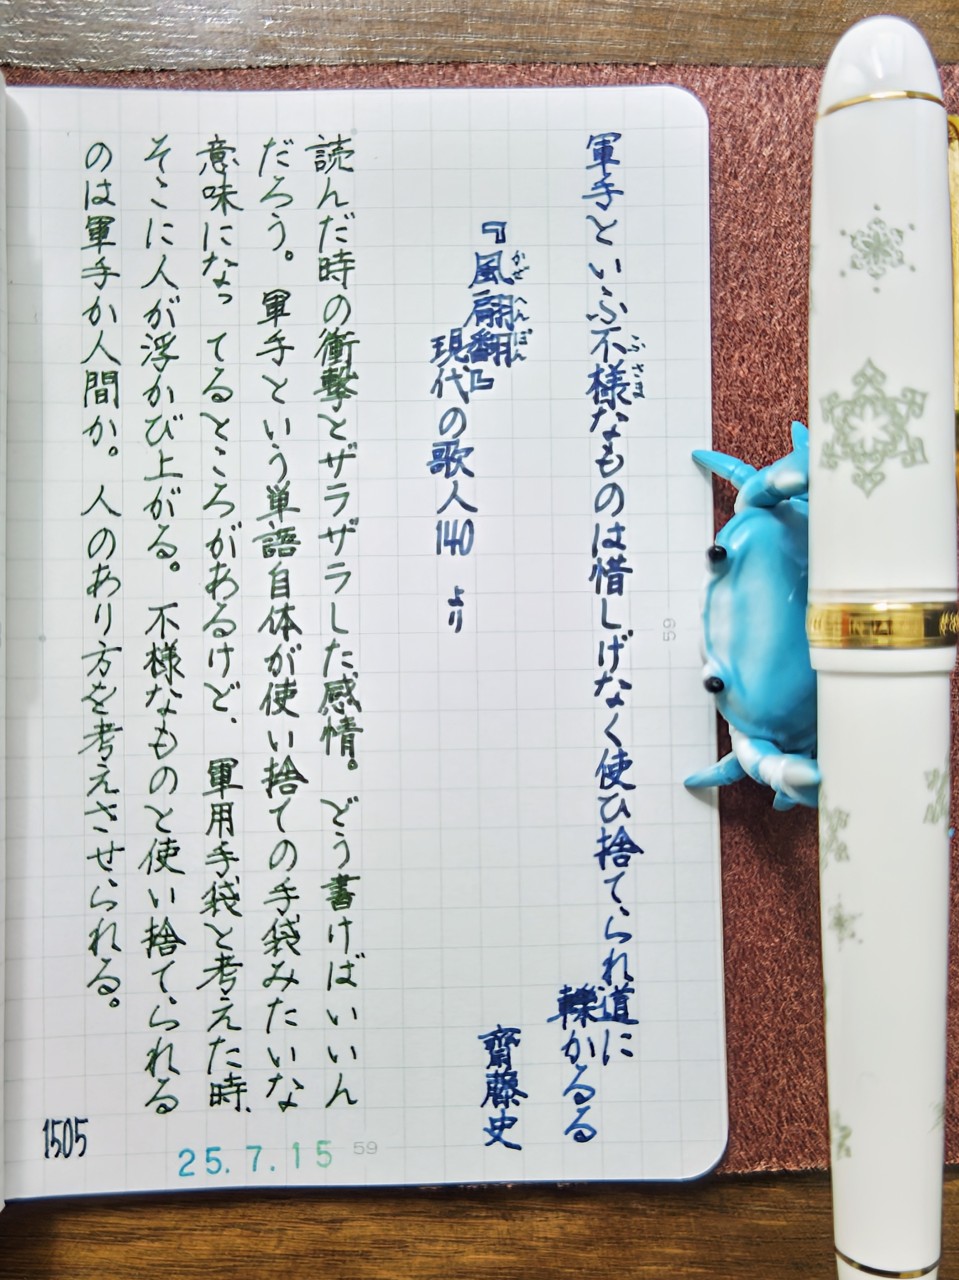 軍手といふ不様なものは惜しげなく使ひ捨てられ道に
轢かるる
齋藤史
『風翩翻』
現代の歌人140 より
読んだ時の衝撃とザラザラした感情。どう書けばいいん
だろう。軍手という単語自体が使い捨ての手袋みたいな
意味になってるところがあるけど、軍用手袋と考えた時、
そこに人が浮かび上がる。不様なものと使い捨てられる
のは軍手か人間か。人のあり方を考えさせられる。
ぶさま
かぜ へんぽん
1505
25.7.15
59
59